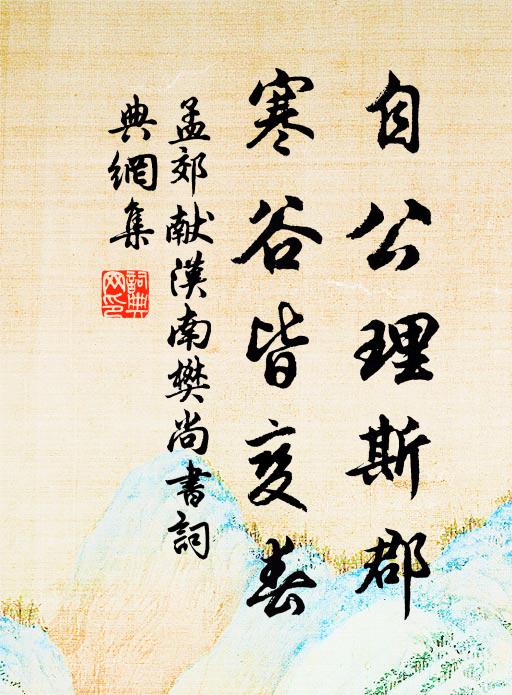 自公理斯郡
寒谷皆变春
孟郊献漢南樊尚書詞
典網集
詞典
网印